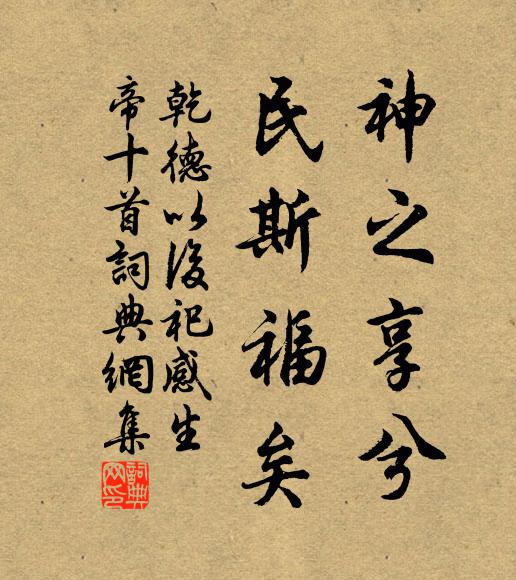 神之享兮
民斯福矣
乾德以後祀感生
帝十首詞典網集
詞典網印